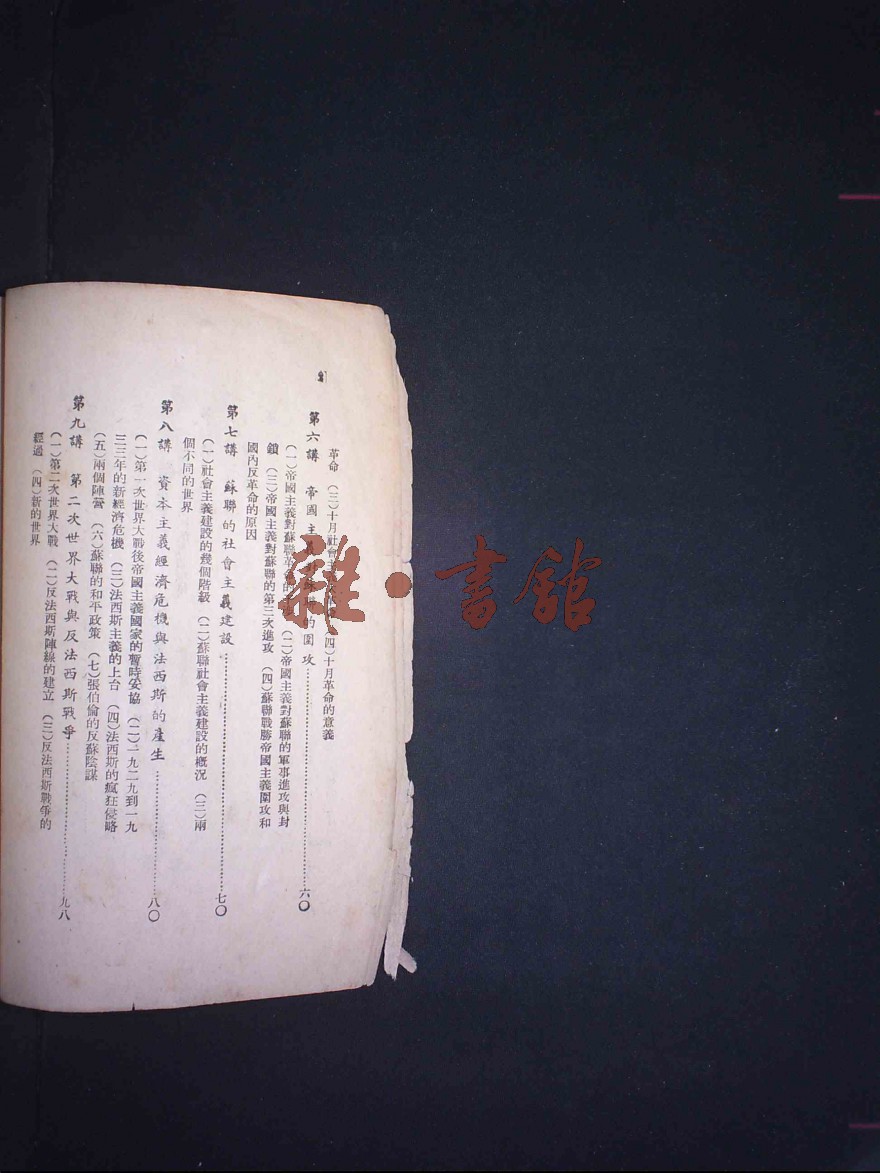 革命 （三）十月社會主 （四）十月革命的意義
第六講 帝國主義對蘇聯的圍攻……六〇
（一）帝國主義對蘇聯革命的 （二）帝國主義對蘇聯的軍事進攻與封
鎖 （三）帝國主義對蘇聯的第三次進攻 （四）蘇聯戰勝帝國主義圍攻和
國內反革命的原因
第七講 蘇聯的社會主義建設……七〇
（一）社會主義建設的幾個階級 （二）蘇聯社會主義建設的概況 （三）兩
個不同的世界
第八講 資本主義經濟危機與法西斯的產生……八〇
（一）第一次世界大戰後帝國主義國家的暫時妥協 （二）一九二九到一九
三三年的新經濟危機 （三）法西斯主義的上台 （四）法西斯的瘋狂侵略
（五）兩個陣營 （六）蘇聯的和平政策 （七）張伯倫的反蘇陰謀
第九講 第二次世界大戰與反法西斯戰爭……九八
（一）第二次世界大戰 （二）反法西斯陣線的建立 （三）反法西斯戰爭的
經過 （四）新的世界
雜·書館